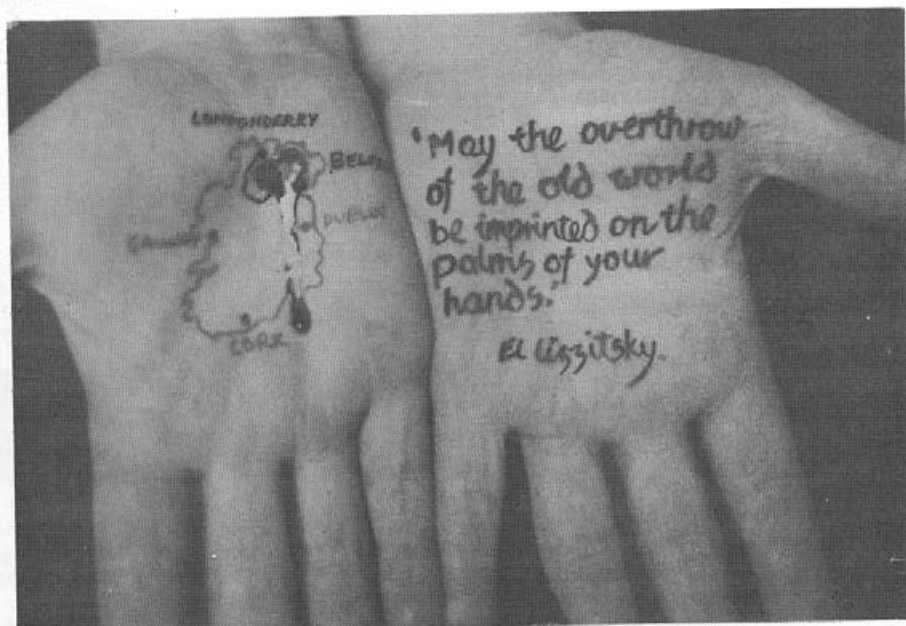 LONDONDERRY
BELFA
DUBLIN
GALWAY
CORK
'May the overthrow
of the old world
be imprinted on the
palms of your
hands.'
El Lissitsky.